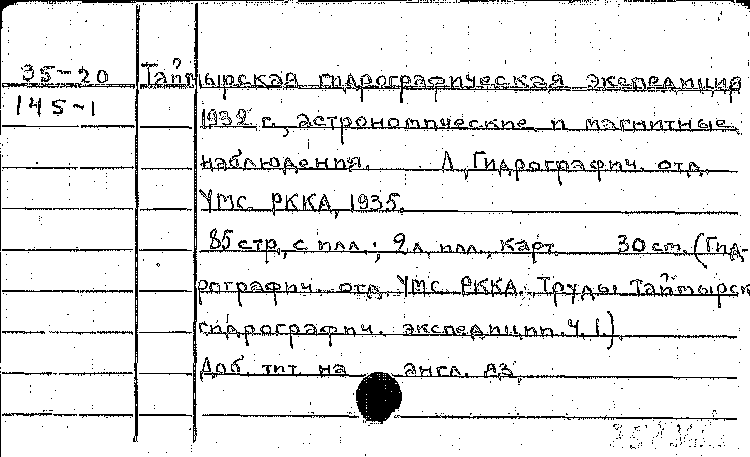 35-20 Таймырская гидрографическая экспедиция
145-1 1932 г., астрономические и магнитные
наблюдения. Л., Гидрографич. отд.
УМС РККА, 1935.
85 стр., с илл.; 2 л. илл., карт. 30 см. (Гид-
рографич. отд. УМС РККА. Труды Таймырск
гидрографич. экспедиции. Ч. 1.)
Доб. тит. на англ. яз.